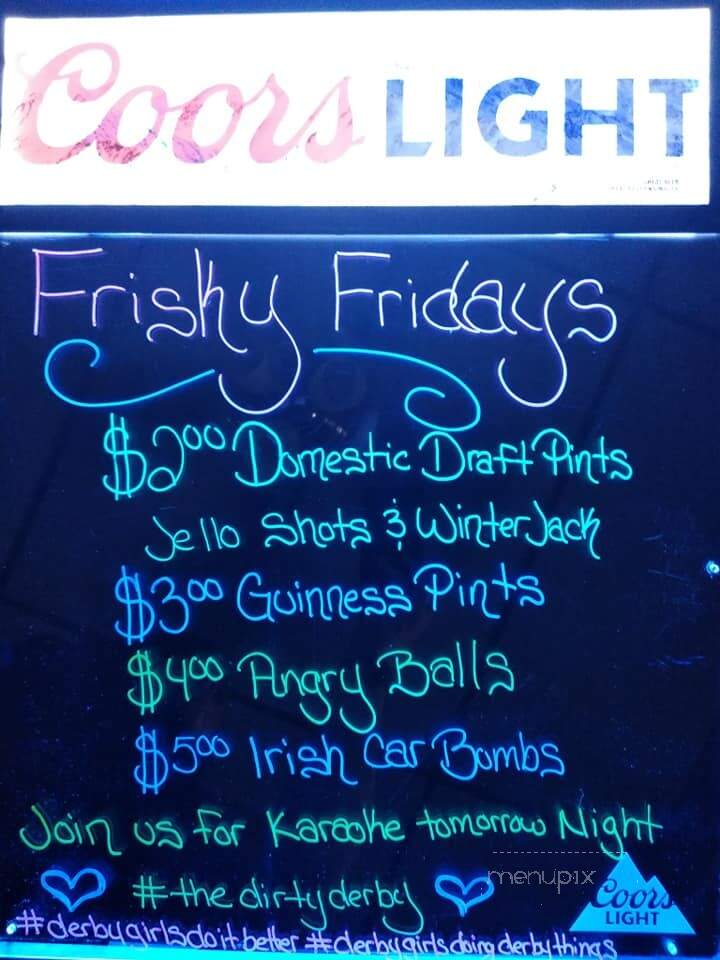 Coors LIGHT
Frisky Fridays
$2.00 Domestic Draft Pints
Jello Shots & Winter Jack
$3.00 Guinness Pints
$4.00 Angry Balls
$5.00 Irish Car Bombs
Join us for Karaoke tomorrow Night
#thedirtyderby
menupix
Coors
LIGHT
#derbygirlsdoitbetter #derbygirlsdoingderbythings